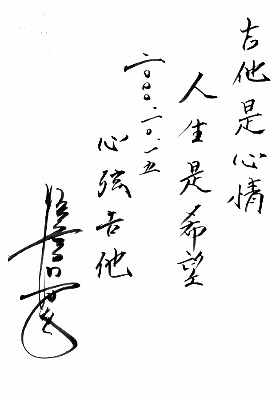 吉他是心情
人生是希望
二〇〇〇.一〇.一五
心弦吉他